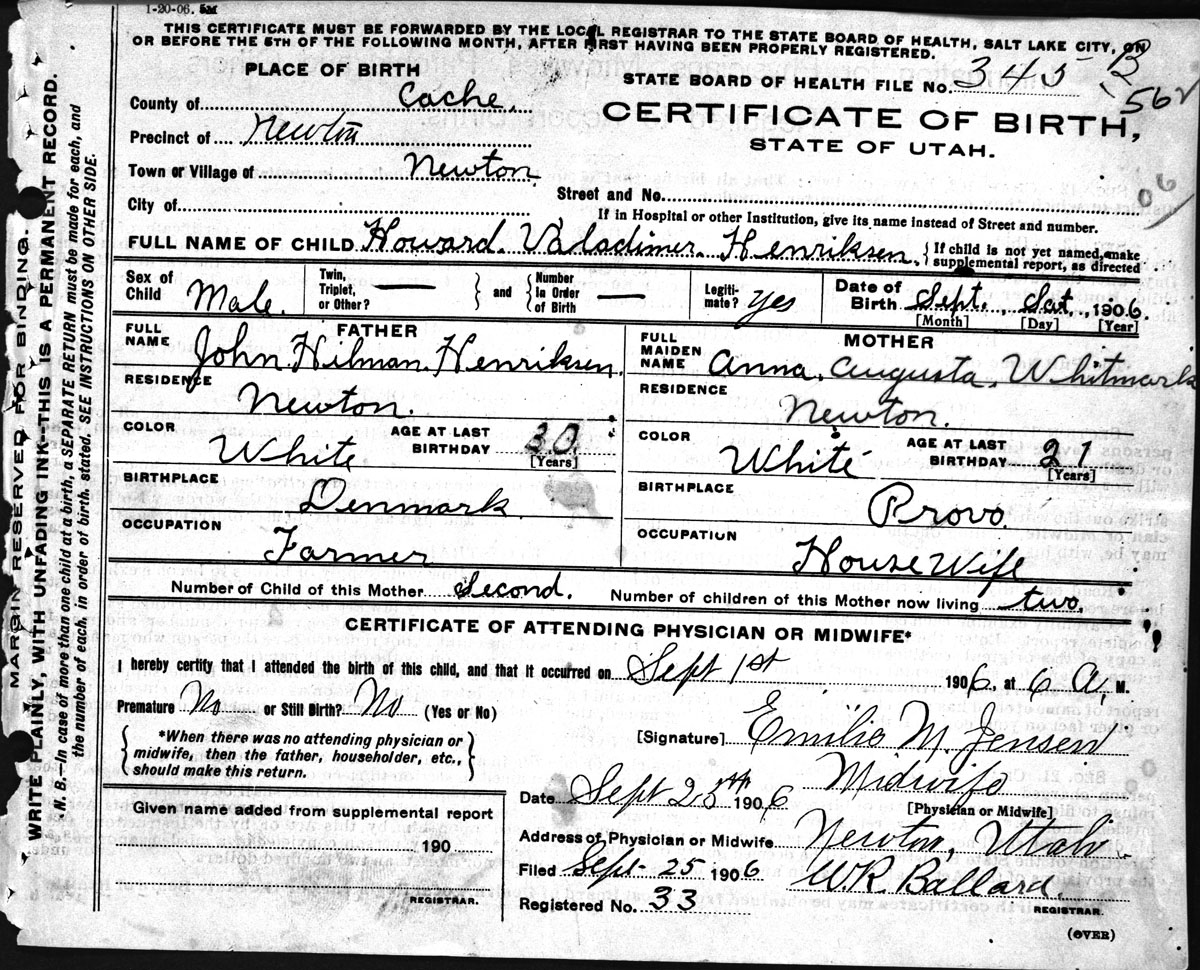 1-20-06. 5M
THIS CERTIFICATE MUST BE FORWARDED BY THE LOCAL REGISTRAR TO THE STATE BOARD OF HEALTH, SALT LAKE CITY, ON
OR BEFORE THE 5TH OF THE FOLLOWING MONTH, AFTER FIRST HAVING BEEN PROPERLY REGISTERED.
PLACE OF BIRTH
STATE BOARD OF HEALTH FILE No. 345-B
562
County of Cache.
CERTIFICATE OF BIRTH,
Precinct of Newton
STATE OF UTAH.
Town or Village of Newton
06
Street and No.
City of
If in Hospital or other Institution, give its name instead of Street and number.
FULL NAME OF CHILD Howard. Valadimer Henriksen. { If child is not yet named, make
supplemental report, as directed
Sex of Child Male. Twin, Triplet, or Other? — } and { Number In Order of Birth — Legiti-mate? yes Date of Birth Sept. Sat., 1906.
[Month] [Day] [Year]
FATHER
FULL NAME John Hilman Henriksen.
RESIDENCE
Newton.
COLOR White AGE AT LAST BIRTHDAY 30
[Years]
BIRTHPLACE
Denmark
OCCUPATION
Farmer
MOTHER
FULL MAIDEN NAME Anna. Augusta. Whitmark
RESIDENCE
Newton.
COLOR White AGE AT LAST BIRTHDAY 21
[Years]
BIRTHPLACE
Provo.
OCCUPATION
House Wife
Number of Child of this Mother Second. Number of children of this Mother now living two,
CERTIFICATE OF ATTENDING PHYSICIAN OR MIDWIFE*
I hereby certify that I attended the birth of this child, and that it occurred on Sept 1st 1906, at 6 A, M.
Premature No or Still Birth? No (Yes or No)
{ *When there was no attending physician or
midwife, then the father, householder, etc.,
should make this return. }
[Signature] Emilie M. Jensen
Midwife
[Physician or Midwife]
Date Sept 25th 1906
Address of Physician or Midwife Newton, Uttah.
Filed Sept-25 1906 WR Ballard.
REGISTRAR.
Registered No. 33
(OVER)
Given name added from supplemental report
190
REGISTRAR.
MARGIN RESERVED FOR BINDING.
WRITE PLAINLY, WITH UNFADING INK--THIS IS A PERMANENT RECORD.
N. B.—In case of more than one child at a birth, a SEPARATE RETURN must be made for each, and
the number of each, in order of birth, stated. SEE INSTRUCTIONS ON OTHER SIDE.